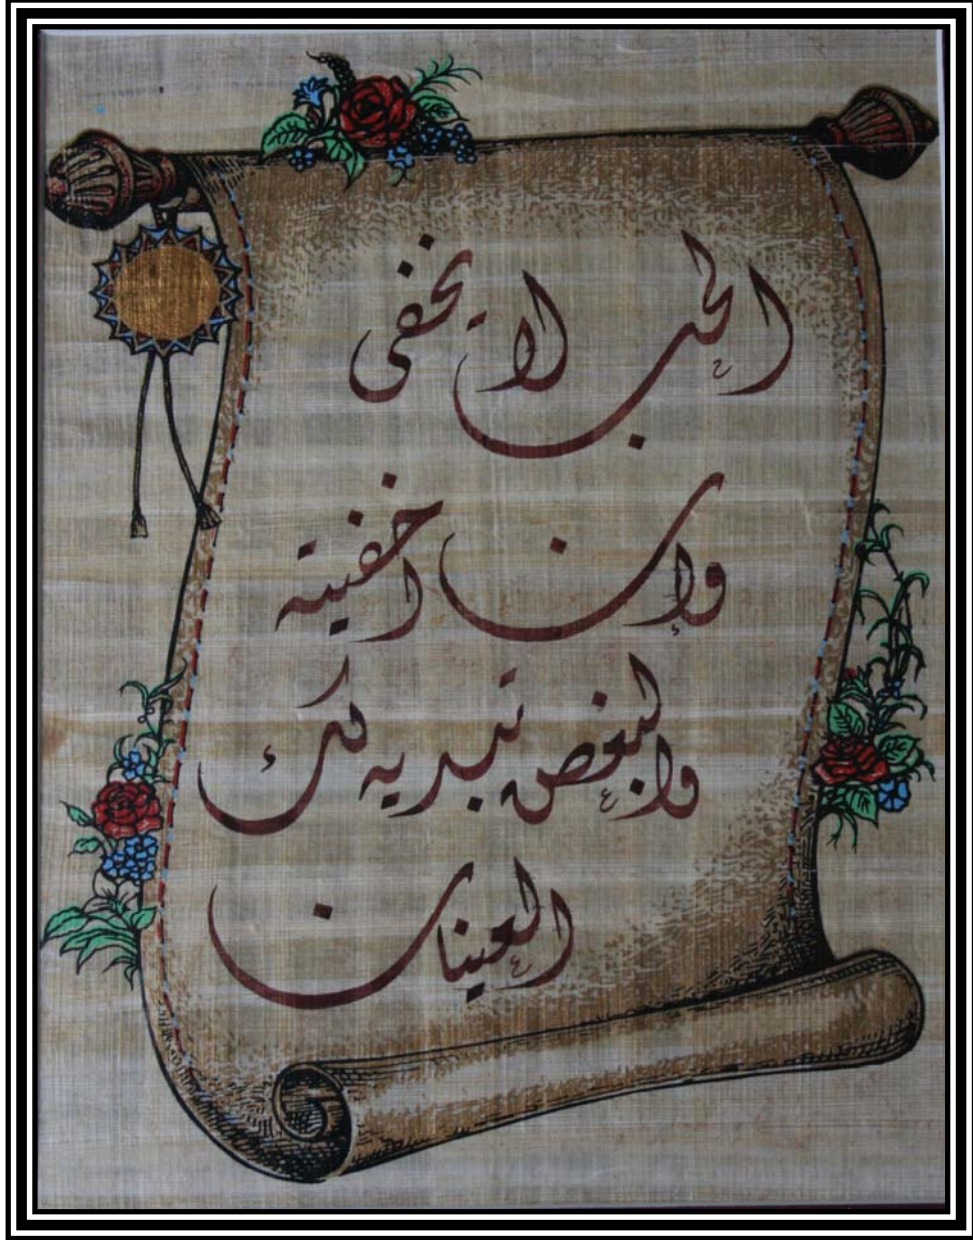 الحب لا يخفى
وإن اخفيته
والبغض تبديه لك
العينان